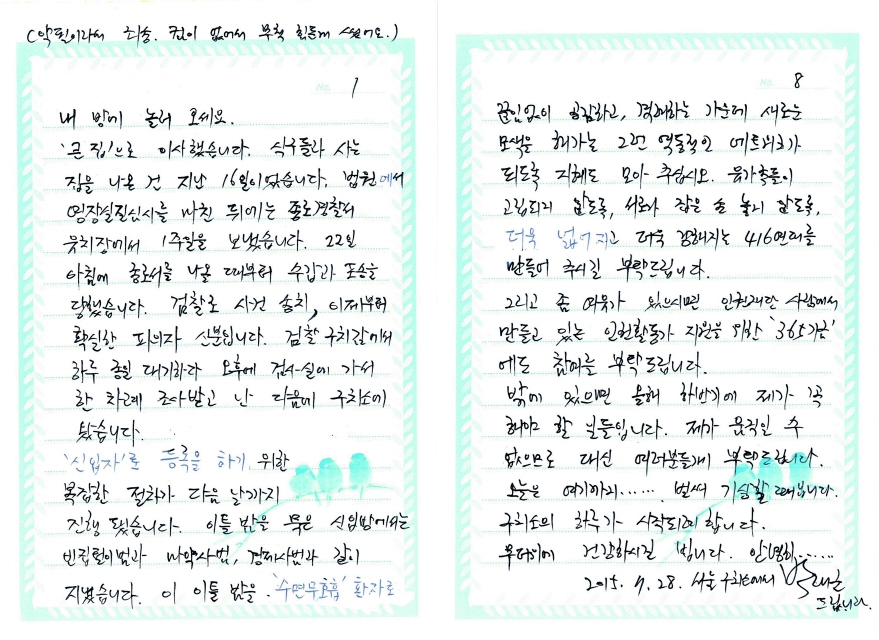 (악필이라서 죄송. 컴이 없어서 무척 힘들게 썼어요.)
No. 1
내 방에 놀러 오세요.
'큰 집'으로 이사했습니다. 식구들과 사는
집을 나온 건 지난 16일이었습니다. 법원에서
영장실질심사를 마친 뒤에는 종로경찰서
유치장에서 1주일을 보냈습니다. 22일
아침에 종로서를 나올 때부터 수갑과 포승을
당했습니다. 검찰로 사건 송치, 이제부터
확실한 피의자 신분입니다. 검찰 구치감에서
하루 종일 대기하다 오후에 검사실에 가서
한 차례 조사받고 난 다음에 구치소에
왔습니다.
'신입자'로 등록을 하기 위한
복잡한 절차가 다음 날까지
진행 됐습니다. 이틀 밤을 묵은 신입방에서는
빈집털이범과 마약사범, 경제사범과 같이
지냈습니다. 이 이틀 밤을 '수면무호흡' 환자로
No. 8
끊임없이 공감하고, 격려하는 가운데 새로운
모색을 해가는 그런 역동적인 네트워크가
되도록 지혜도 모아 주십시오. 유가족들이
고립되지 않도록, 서로가 잡은 손 놓지 않도록,
더욱 넓어지고 더욱 강해지는 416연대를
만들어 주시길 부탁드립니다.
그리고 좀 여유가 있으시면 인권재단 사람에서
만들고 있는 인권활동가 지원을 위한 '365기금'
에도 참여를 부탁드립니다.
밖에 있으면 올해 하반기에 제가 꼭
해야 할 일들입니다. 제가 움직일 수
없으므로 대신 여러분들께 부탁드립니다.
오늘은 여기까지...... 벌써 기상할 때입니다.
구치소의 하루가 시작되려 합니다.
무더위에 건강하시길 빕니다. 안녕히......
2015. 7. 28. 서울구치소에서 박래군
드립니다.